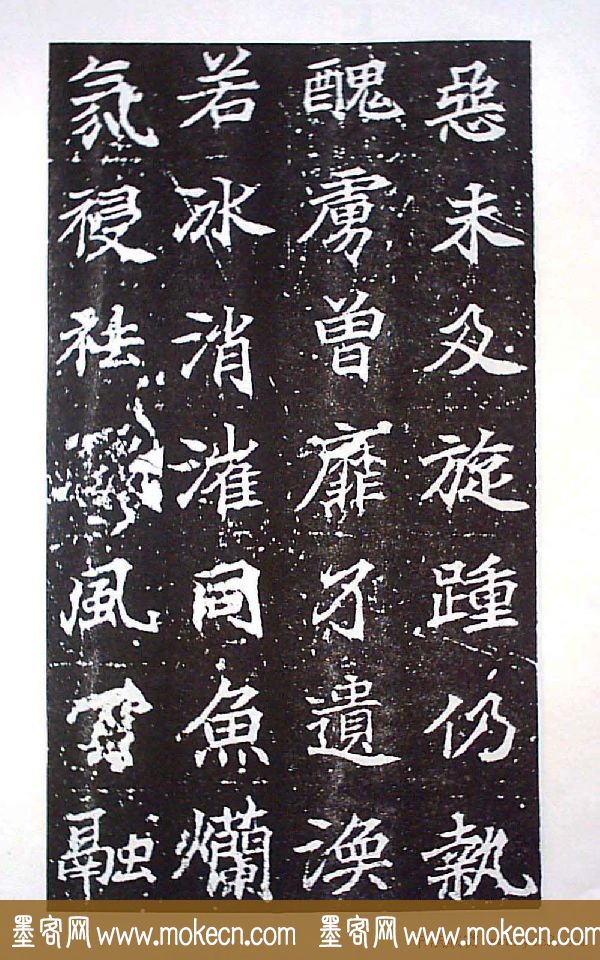 惡未及旋踵仍執
醜虜曾靡孑遺渙
若冰消漼同魚爛
氛祲祛風融
墨客网 www.mokecn.com 墨客网 www.mokecn.com